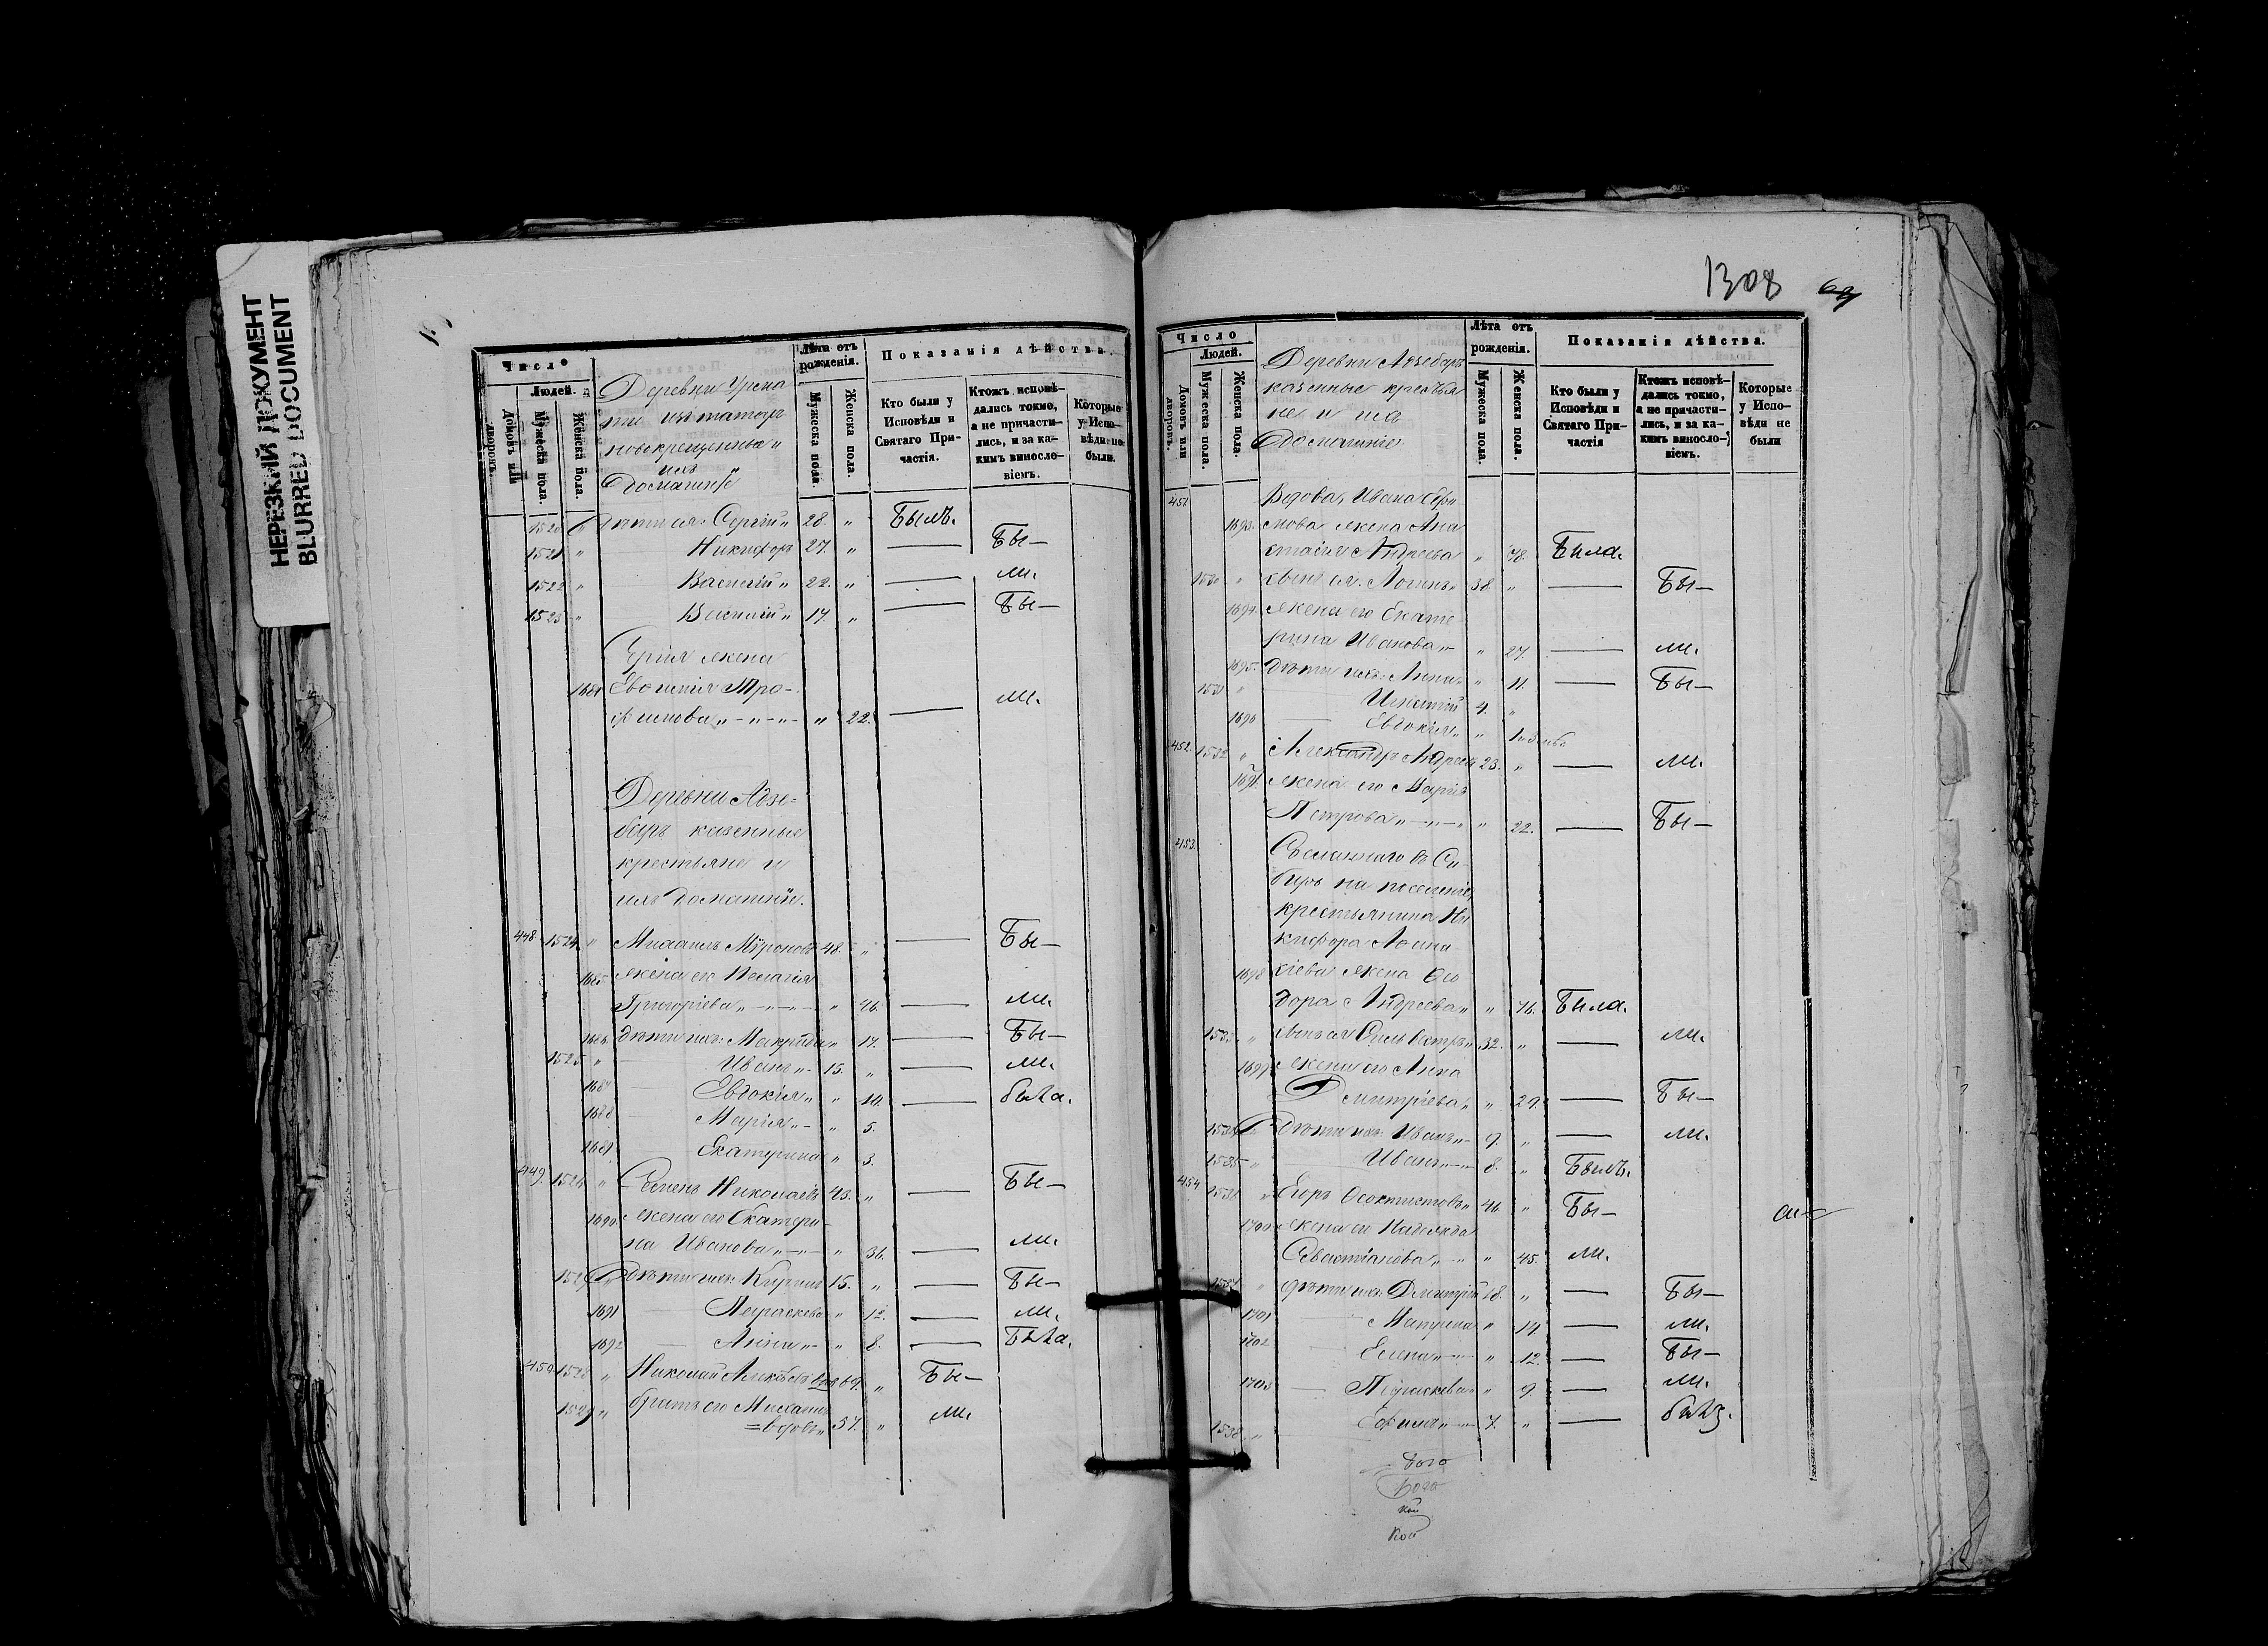 НЕРЕЗКИЙ ДОКУМЕНТ
BLURRED DOCUMENT
Число
Людей.
Домовъ или дворовъ.
Мужеска пола.
Женска пола.
Деревни
изъ татаръ
новокрещенные
ихъ
Домашніе
Лѣта отъ рожденія.
Мужеска пола.
Женска пола.
Показанія дѣйства.
Кто были у Исповѣди и Святаго Причастія.
Ктожъ исповѣдались токмо, а не причастились, и за какимъ винословіемъ.
Которые у Исповѣди не были.
1520 дѣти ея: Сергій 28. " Былъ.
1521 " Никифоръ 27. " — Бы—
1522 " Василій " 22. " — ли.
1523 " Василій " 17. " — Бы—
Сергія жена
1684 Евдокія Тро-
фимова " " 22. — ли.
Деревни Адзе=
баръ казенные
крестьяне и
ихъ домашніи.
448 1524 " Михаилъ Мѵроновъ 48. " — Бы—
1685 жена его Пелагія
Григоріева " " 46. — ли.
1686 дѣти ихъ: Макрина " 17. — Бы—
1525 " Иванъ " 15. " — ли.
1687 Евдокія " " 14. — была.
1688 Марія " " 5.
1689 Екатерина " 3.
449. 1526 " Семенъ Николаевъ 43. " — Бы—
1690 жена его Екатери-
на Иванова " " 36. — ли.
1527 дѣти ихъ: Кирилъ 15. " — Бы—
1691 Параскева " 12. — ли.
1692 Анна " " 8. — Была.
450 1528 " Николай вдовъ 69. " Бы—
1529 " братъ его Михаилъ
= вдовъ " 57. " ли.
1308
Число
Людей.
Домовъ или дворовъ.
Мужеска пола.
Женска пола.
Деревни Адзебаръ
казенные крестья
не и ихъ
Домашніе
Лѣта отъ рожденія.
Мужеска пола.
Женска пола.
Показанія дѣйства.
Кто были у Исповѣди и Святаго Причастія
Ктожъ исповѣдались токмо, а не причастились, и за какимъ винословіемъ.
Которые у Исповѣди не были
451 Вдова, Ивана Ефи
1693 мова жена Ана
стасія Андреева " 78. Была.
1530 " сынъ ея: Логинъ " 38. " — Бы—
1694 жена его Екате-
рина Иванова " " 27. — ли.
1695. дѣти ихъ: Анна " " 11. — Бы—
1531 " Игнатій 4. "
1696 Евдокія " "
452 1532 " Александръ Андреевъ 23. " — ли.
1697 жена его Марія
Петрова " " 22. — Бы—
453. Сосланнаго въ Си-
бирь на поселеніе
крестьянина Ни
кифора
1698 жена Ѳео
дора Андреева " " 76. Была.
1533 " сынъ ея 32. " — ли.
1699 жена его Анна
Димитріева " " 29. — Бы—
1534 дѣти ихъ: Иванъ " 9. " — ли.
1535 " Иванъ " 8. " Былъ.
454 1536 " Егоръ Ѳеоктистовъ 46. " Бы—
1700 жена его Надежда
Севастіанова " " 45. ли.
1537 " дѣти ихъ: Димитрій 18. " — Бы—
1701 Матрена " 14 — ли.
1702 Елена " " 12. — Бы—
1703 Параскева " 9. — ли.
1538 " Ефимъ " 7. " — былъ.
Бого
Бого
кой
кой